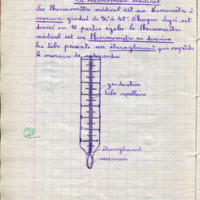 Le thermomètre médical
Le thermomètre médical est un thermomètre à
mercure gradué de 34° à 42°. Chaque degré est
divisé en 10 parties égales. Le thermomètre
médical est un thermomètre au dixième.
Le tube présente un étranglement qui empêche
le mercure de redescendre
graduation
tube capillaire
étranglement
reservoir